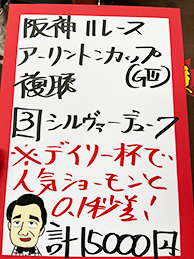 阪神11レース
アーリントンカップ
(GⅢ)
複勝
3 シルヴァーデューク
※デイリー杯で、
人気ショーモンと
0.1秒差!
計15000円